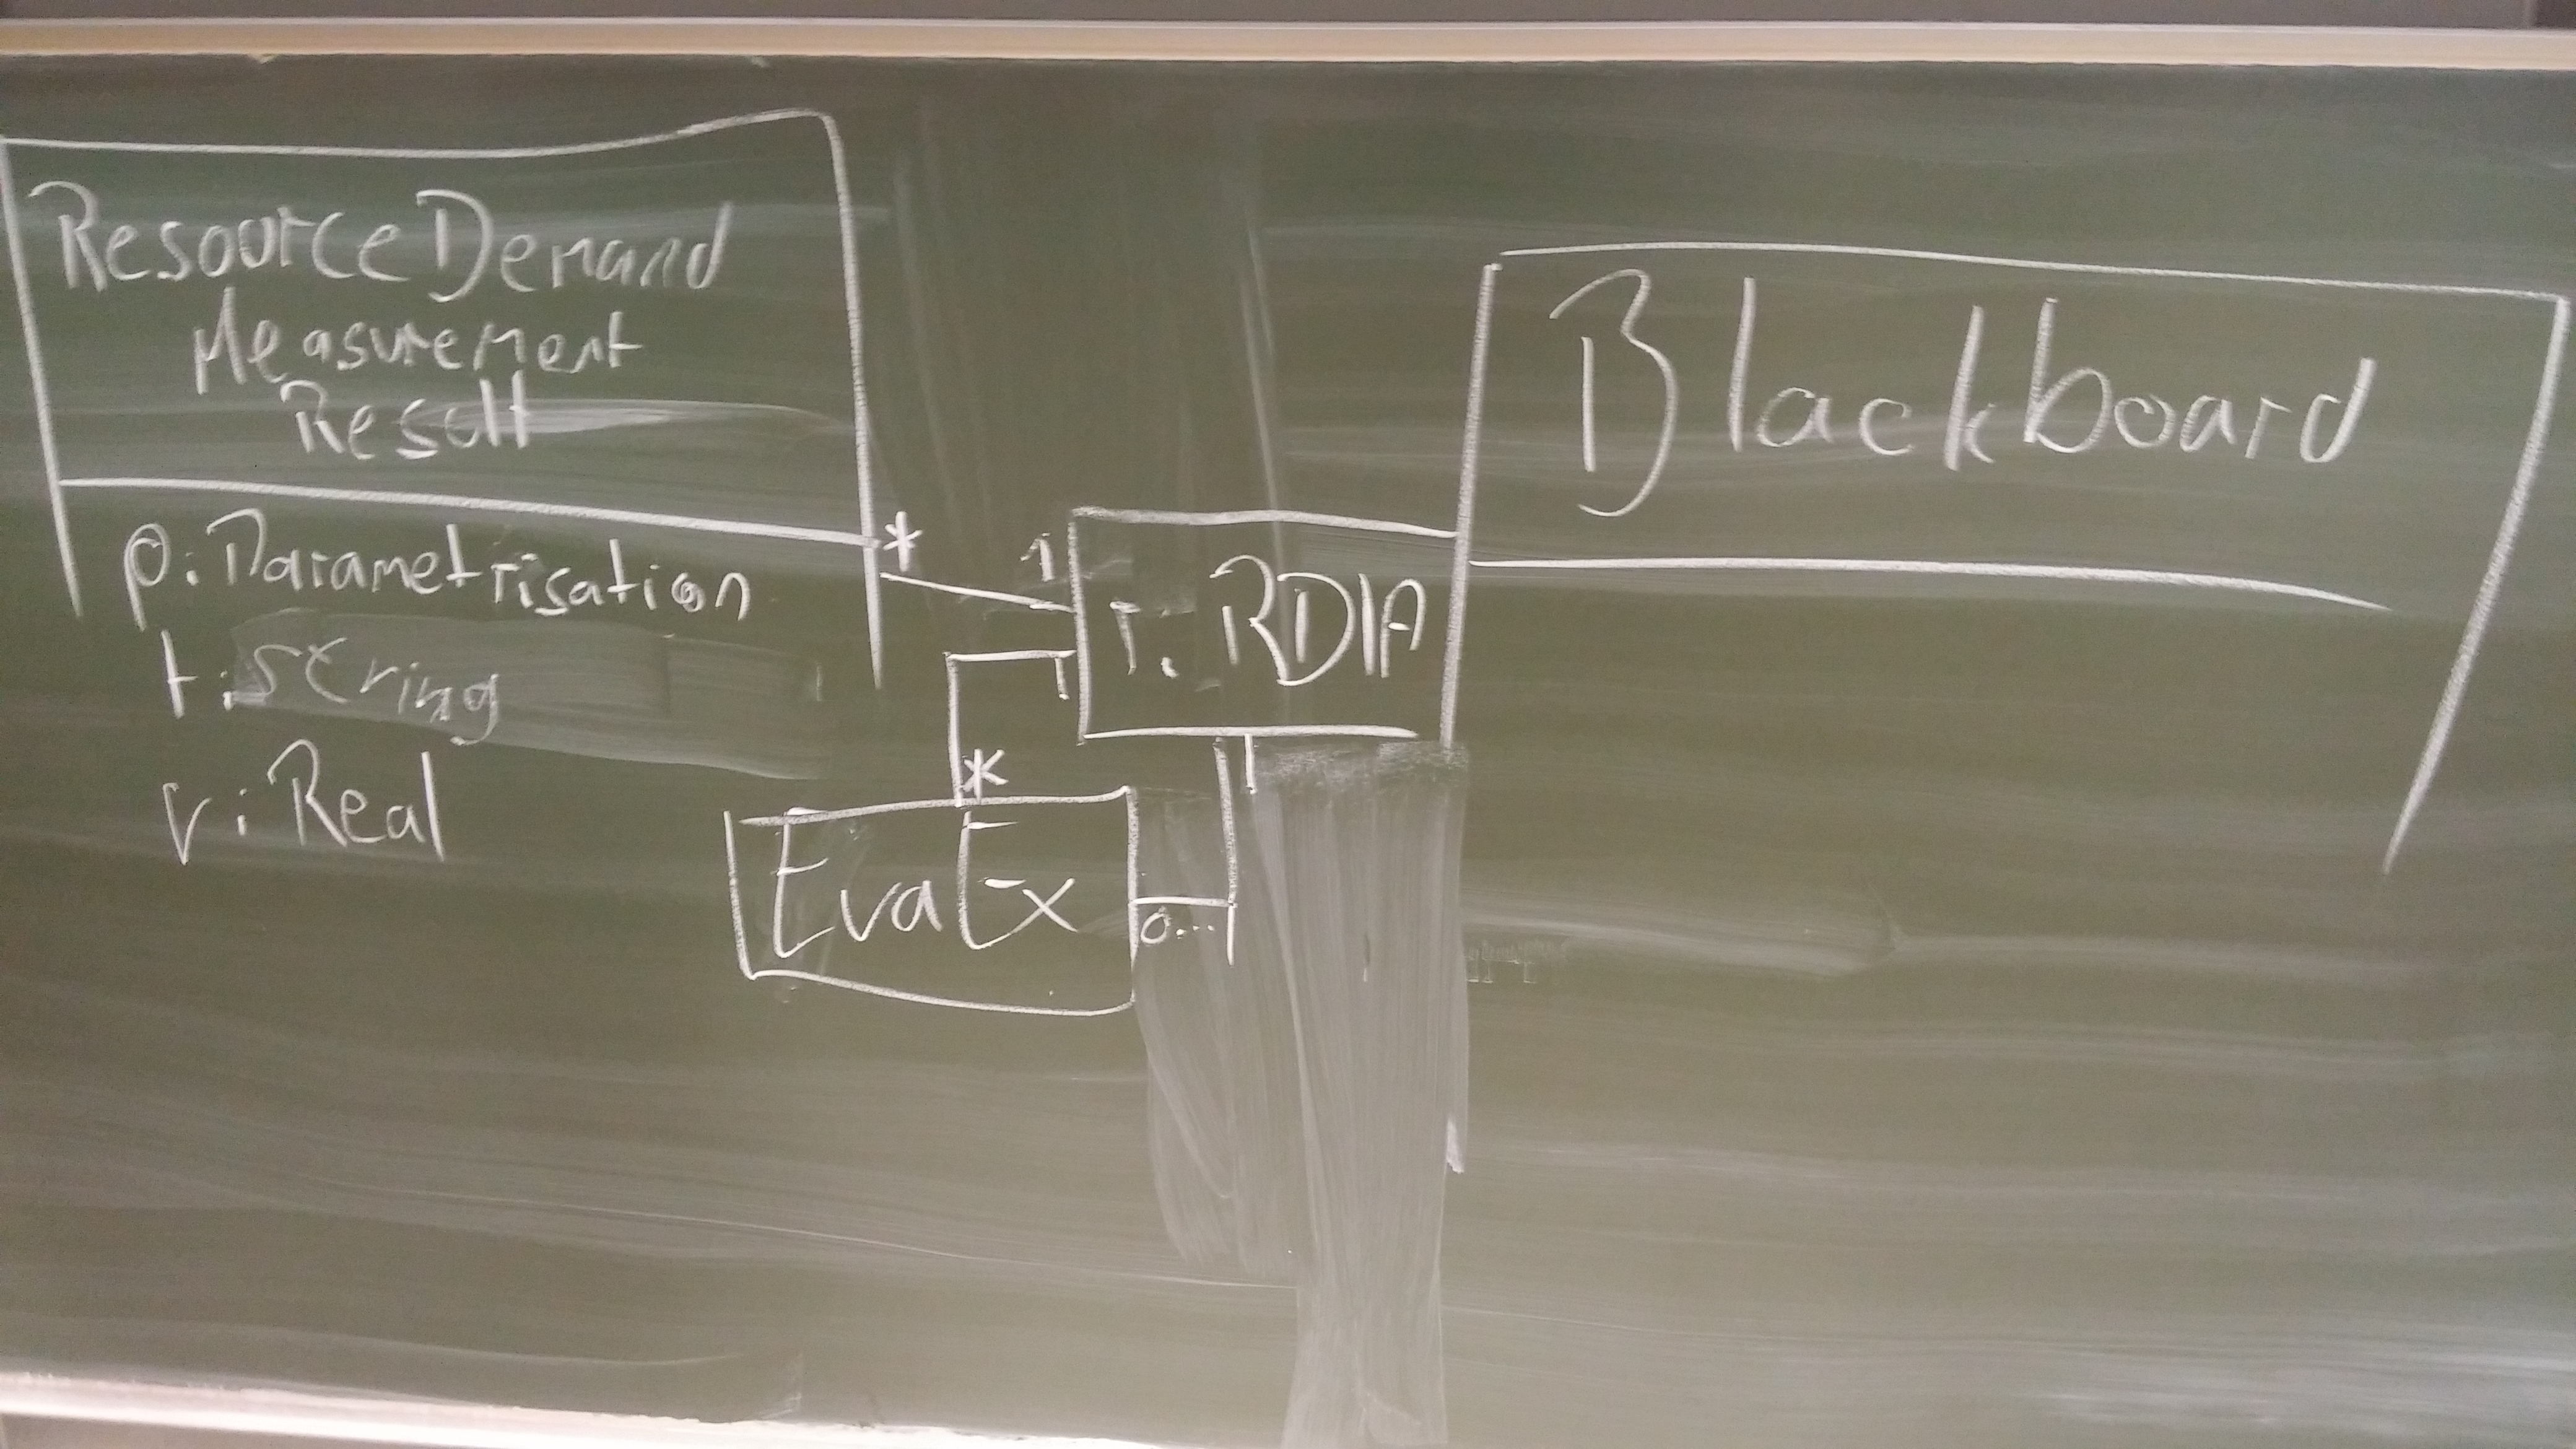 ResourceDemand
Measurement
Result
p: Parametrisation
t: string
v: Real
*
1
r: RDIA
1
*
EvaEx
1
0...1
Blackboard